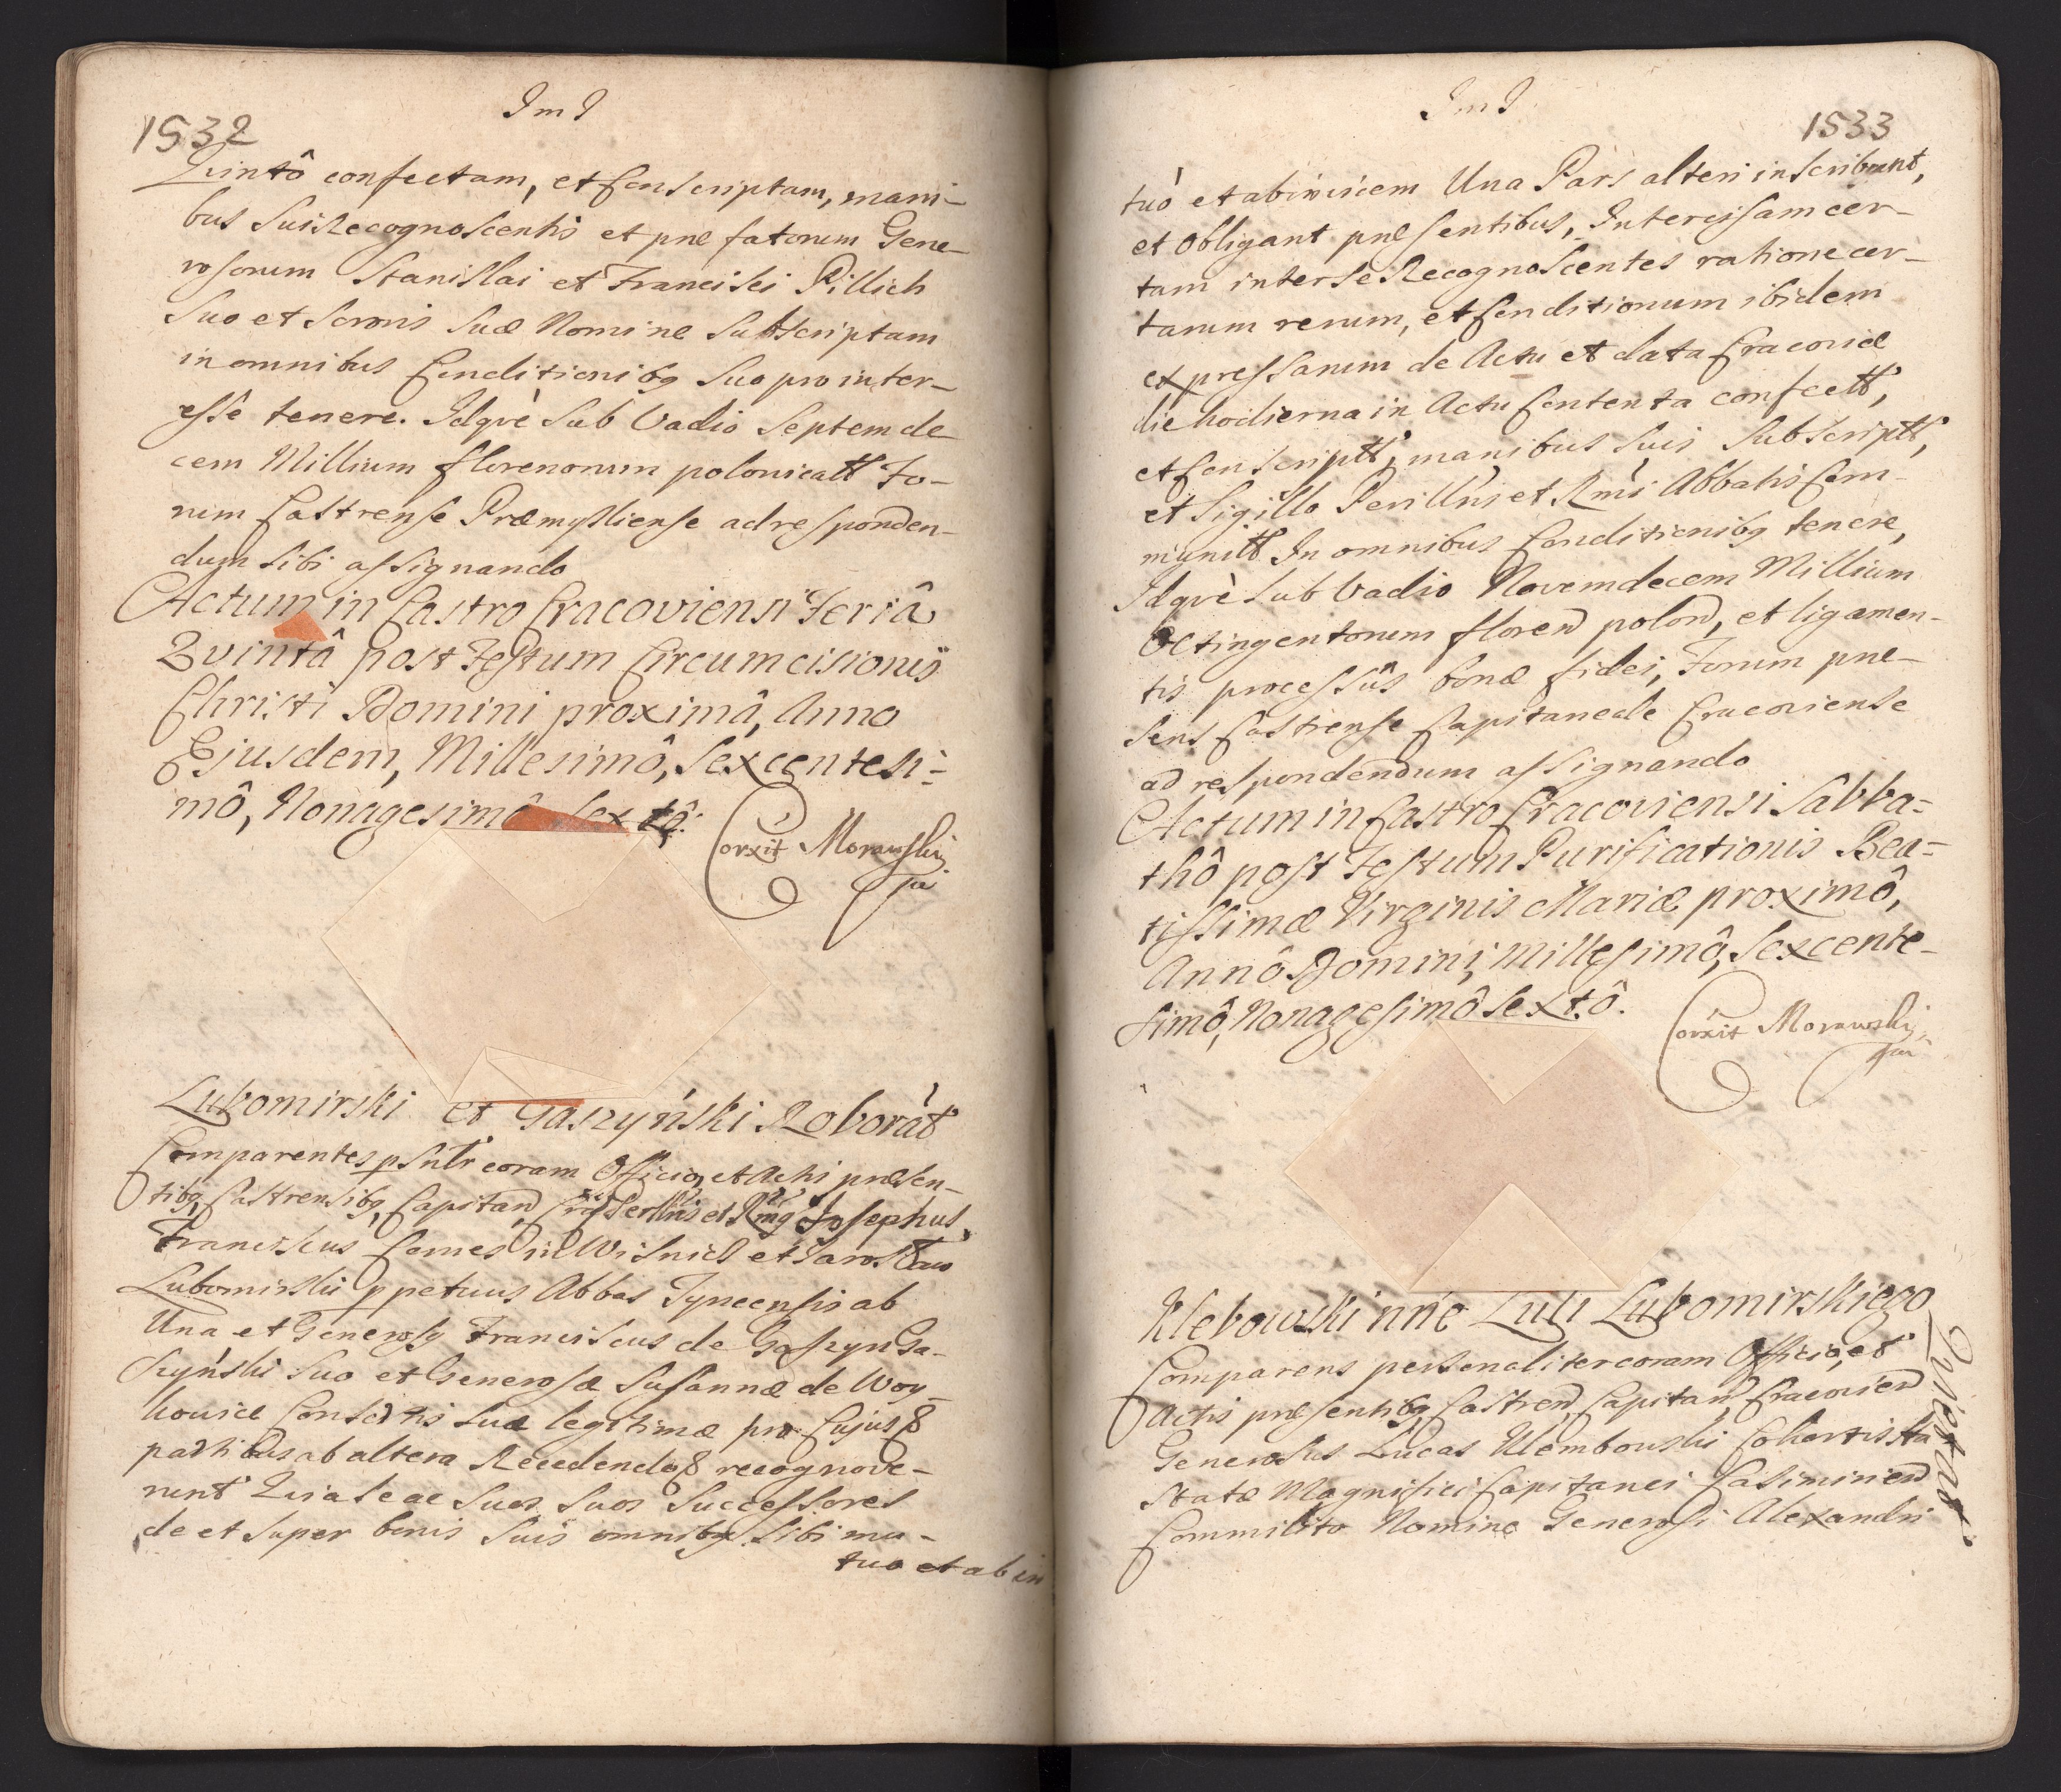 1532
ImI
Quintô confectam, et Conscriptam, mani-
bus Sui Recognoscentis et præfatorum Gene-
rosorum Stanislai et Francisci Pillich
Suo et Sororis Suæ Nomine Subscriptam
in omnibus Conditionibq Suo pro inter-
esse tenere. Idqvè Sub Vadio Septemde
cem Millium florenorum polonicaℓℓ Fo-
rum Castrense Præmysliense ad responden-
dum sibi assignando
Actum in Castro Cracoviensi Feriâ
Qvintâ post Festum Circumcisionis
Christi Domini proximâ, Anno
Ejusdem, Millesimô, Sexcentesi-
mô, Nonagesimô Sextô.
Corxit Morawski
Lubomirski et Gaszyński Roborat
Comparentes psnlr coram Officio, et Actis præsen-
tibq Castrensibq Capitan Crac Perillris et Rmq Josephus
Franciscus Comes in Wisnicz et Jaroslaw
Lubomirski ppetuus Abbas Tyneensis ab
Una et Generosq Franciscus de Gaszyn Ga-
szyński Suo et Generosæ Susannæ de Woy-
kowice Consortis Suæ legitimæ pro Cujus
partibus ab altera Recedendo recognove-
runt Quia se ac Suos Suos Successores
de et super bonis Suis omnibq Sibi mu-
tuo et ab in
ImI
1533
tuò et abinvicem Una Pars alteri inscribunt,
et Obligant præsentibus, Intercisam cer-
tam inter se Recognoscentes ratione cer-
tarum rerum, et Conditionum ibidem
expressarum de Actu et data Cracoviæ
die hodierna in Actu Contenta confectℓ,
et Conscriptℓ, manibus Suis Subscriptℓ,
et Sigillo Perillris et Rmi Abbatis Com-
munitℓ In omnibus Conditionibq tenere,
Idqvè Sub Vadio Novemdecem Millium
Octingentorum floren polon, et ligamen-
tis processûs bonæ fidei, Forum præ-
sens Castrense Capitaneale Cracoviense
ad respondendum assignando
Actum in Castro Cracoviensi Sabba-
thô post Festum Purificationis Bea-
tissimæ Virginis Mariæ proximô,
Annô Domini, Millesimô, Sexcente-
simô, Nonagesimô Sextô.
Corxit Morawski
Klebowski nne Lubomirskiego
Quietat
Comparens personaliter coram Officio, et
Actis præsentibq Castren Capitan Cracovien
Generosus Lucas Klembowski Cohortis Ha
statæ Magnifici Capitanei Casimirien
Commilito Nomine Generosi Alexandri